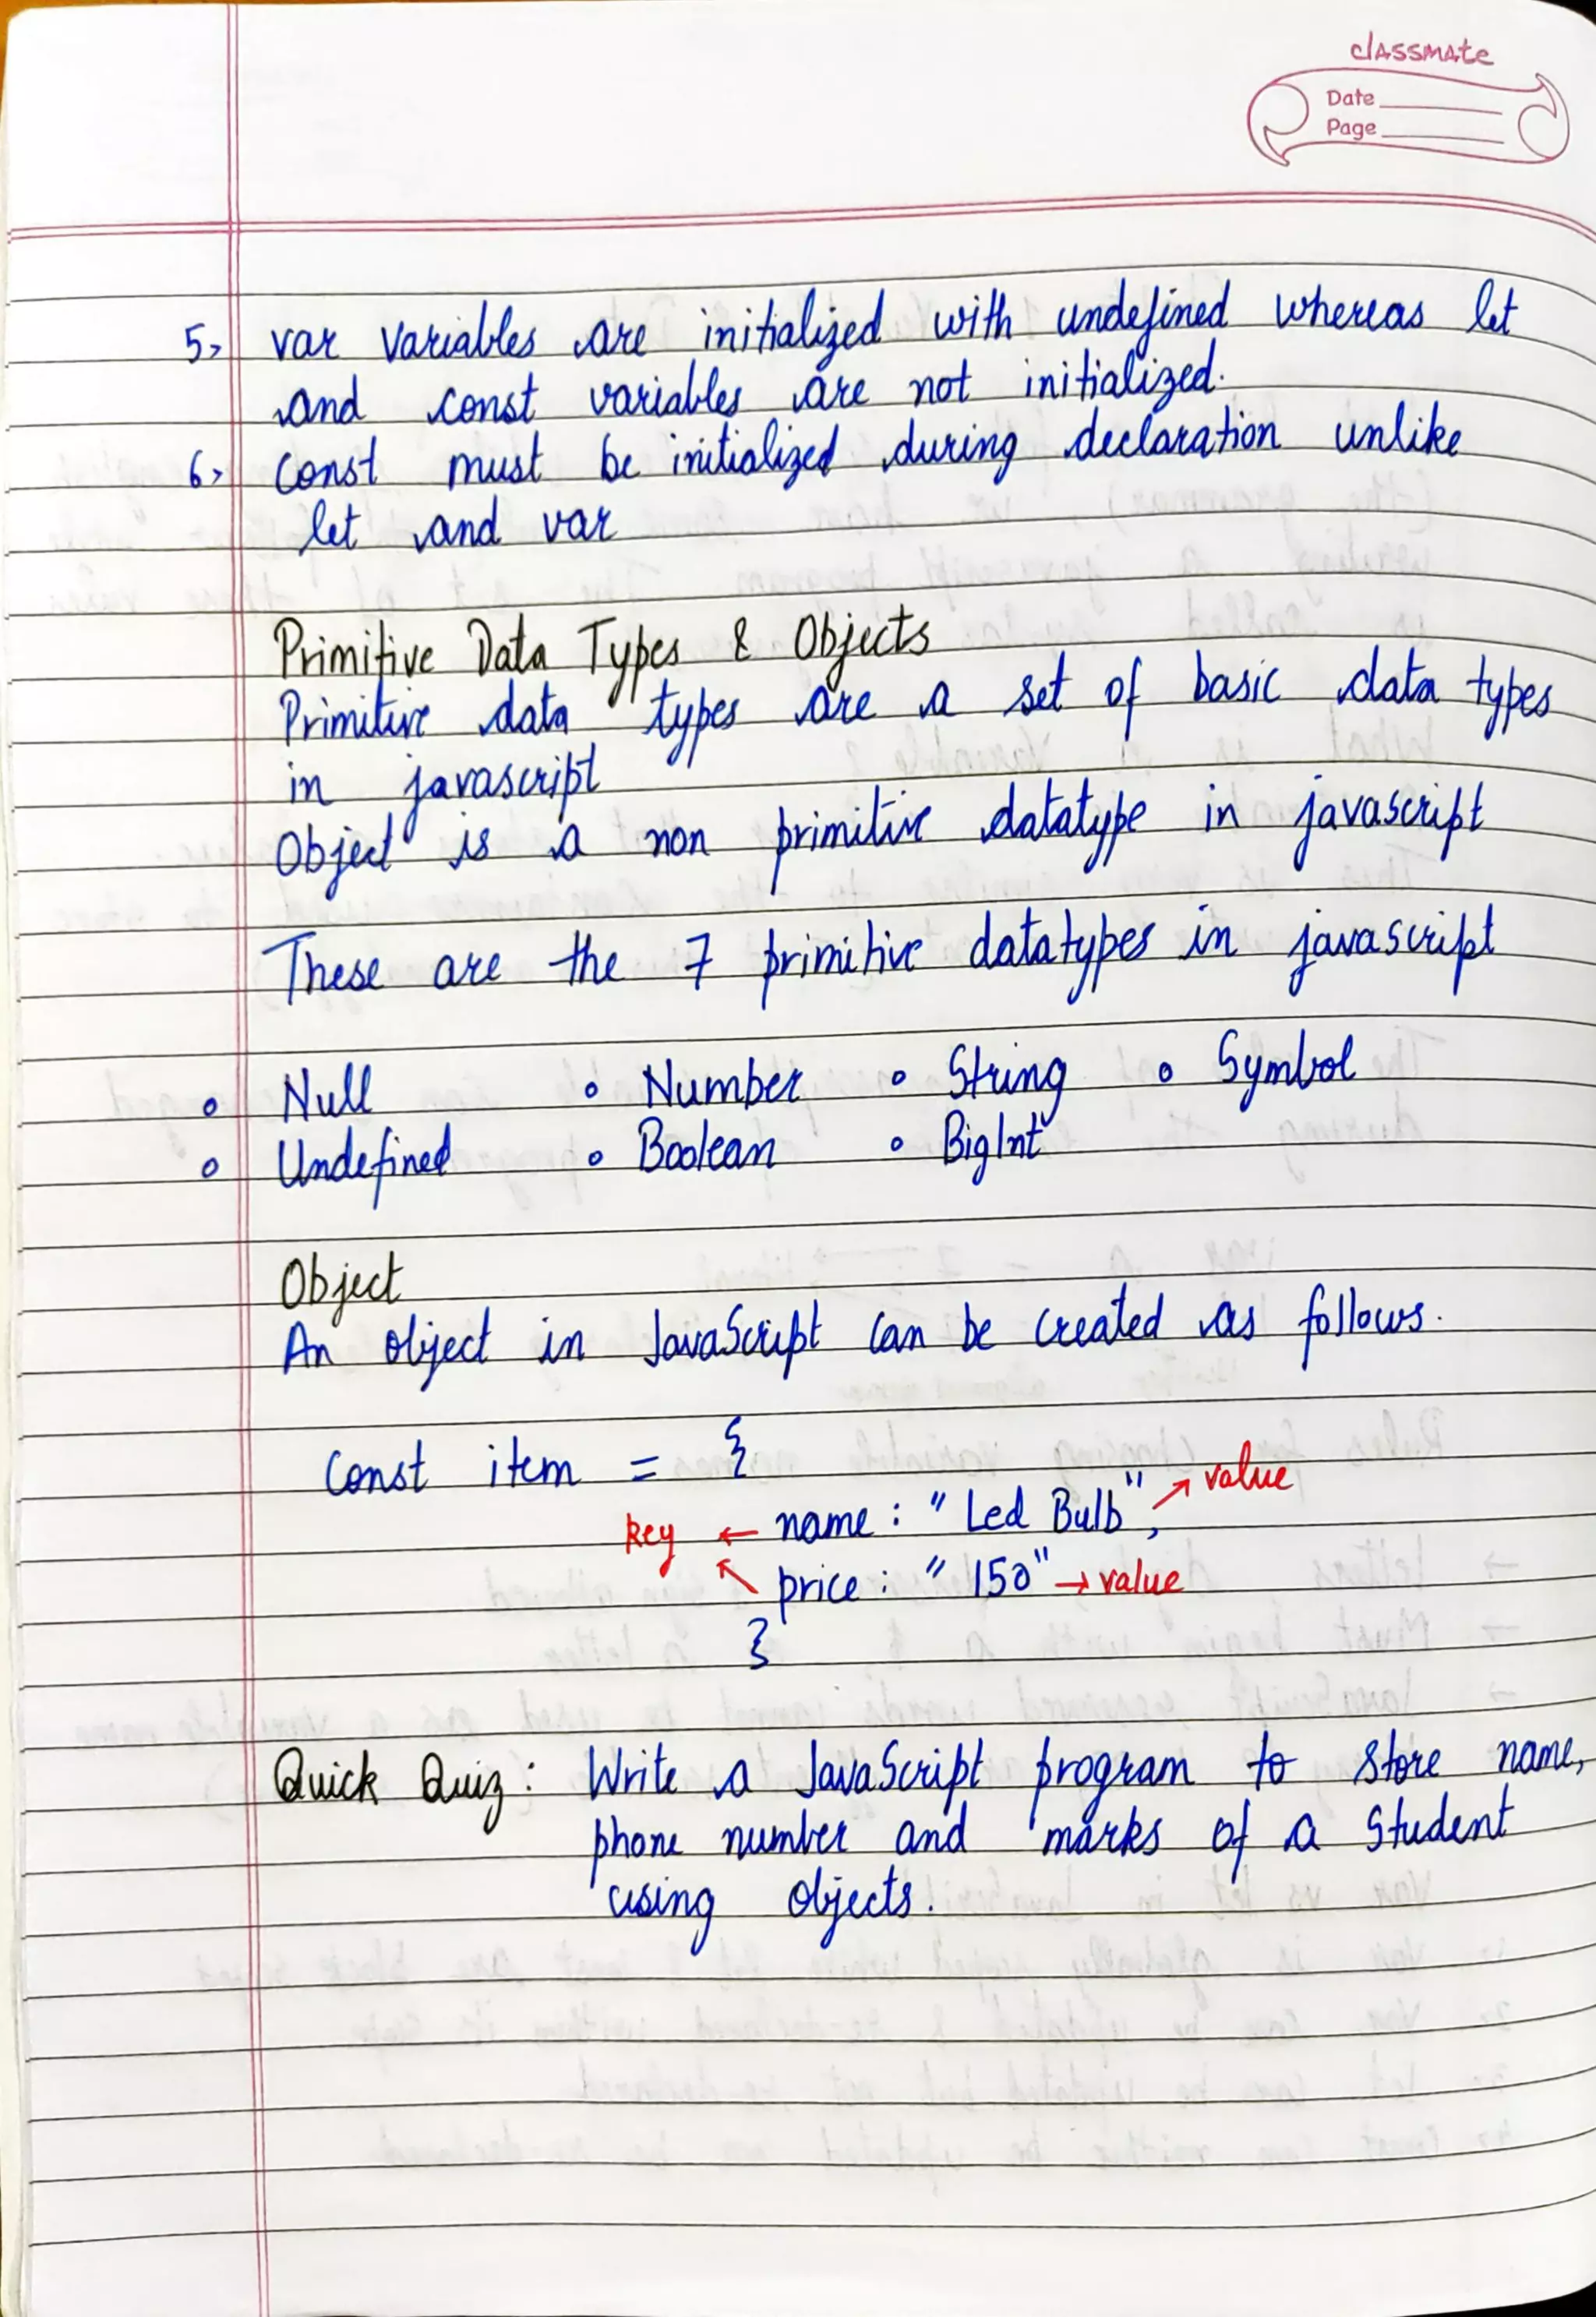 classmate
Date
Page
5> var variables are initialized with undefined whereas let
and const variables are not initialized.
6> const must be initialized during declaration unlike
let and var
Primitive Data Types & Objects
Primitive data types are a set of basic data types
in javascript
Object is a non primitive datatype in javascript
These are the 7 primitive datatypes in javascript
∘ Null ∘ Number ∘ String ∘ Symbol
∘ Undefined ∘ Boolean ∘ BigInt
Object
An object in JavaScript can be created as follows.
const item = {
key ← name : "Led Bulb", ↗ value
↖ price : "150" → value
}
Quick Quiz : Write a JavaScript program to store name,
phone number and marks of a student
using objects.